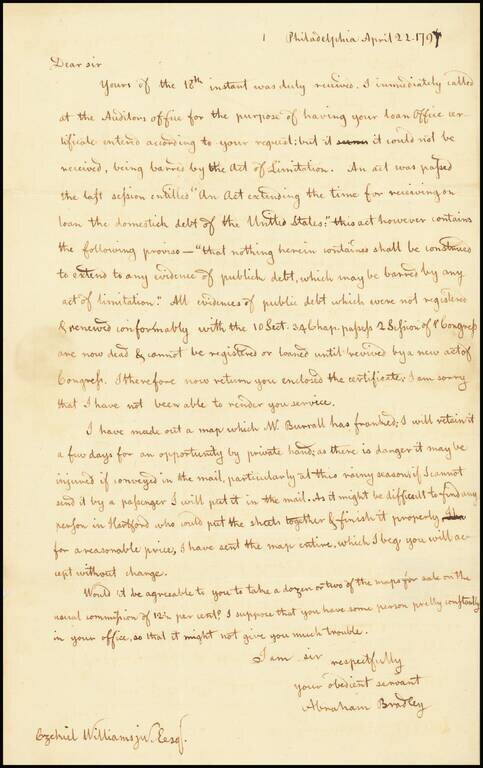 Philadelphia April 22 179
Dear sir
Yours of the 18th instant was duly received. I immediately called
at the Auditors office for the purpose of having your loan Office cer-
tificate entered according to your request; but it it could not be
received, being barred by the Act of Limitation. An act was passed
the last session entitled "An Act extending the time for receiving on
loan the domestick debt of the United States:" this act however contains
the following proviso—"that nothing herein contained shall be construed
to extend to any evidence of publick debt, which may be barred by any
act of limitation." All evidences of public debt which were not registered
& renewed conformably with the 10 Sect. 24 Chap. passes 2 Session of 1st Congress
are now dead & cannot be registered or loaned until revived by a new act of
Congress. I therefore now return you enclosed the certificate; I am sorry
that I have not been able to render you service.
I have made out a map which Mr. Burrall has franked; I will retain it
a few days for an opportunity by private hand; as there is danger it may be
injured if conveyed in the mail, particularly at this rainy season; if I cannot
send it by a passenger I will put it in the mail. As it might be difficult to find any
person in Hertford who could put the sheets together & finish it properly
for a reasonable price, I have sent the map entire, which I beg you will ac-
cept without charge.
Would it be agreeable to you to take a dozen or two of the maps for sale on the
usual commission of 12½ per cent? I suppose that you have some person pretty constantly
in your office, so that it might not give you much trouble.
I am sir respectfully
your obedient servant
Abraham Bradley
Ezekiel Williams jr. Esqr.